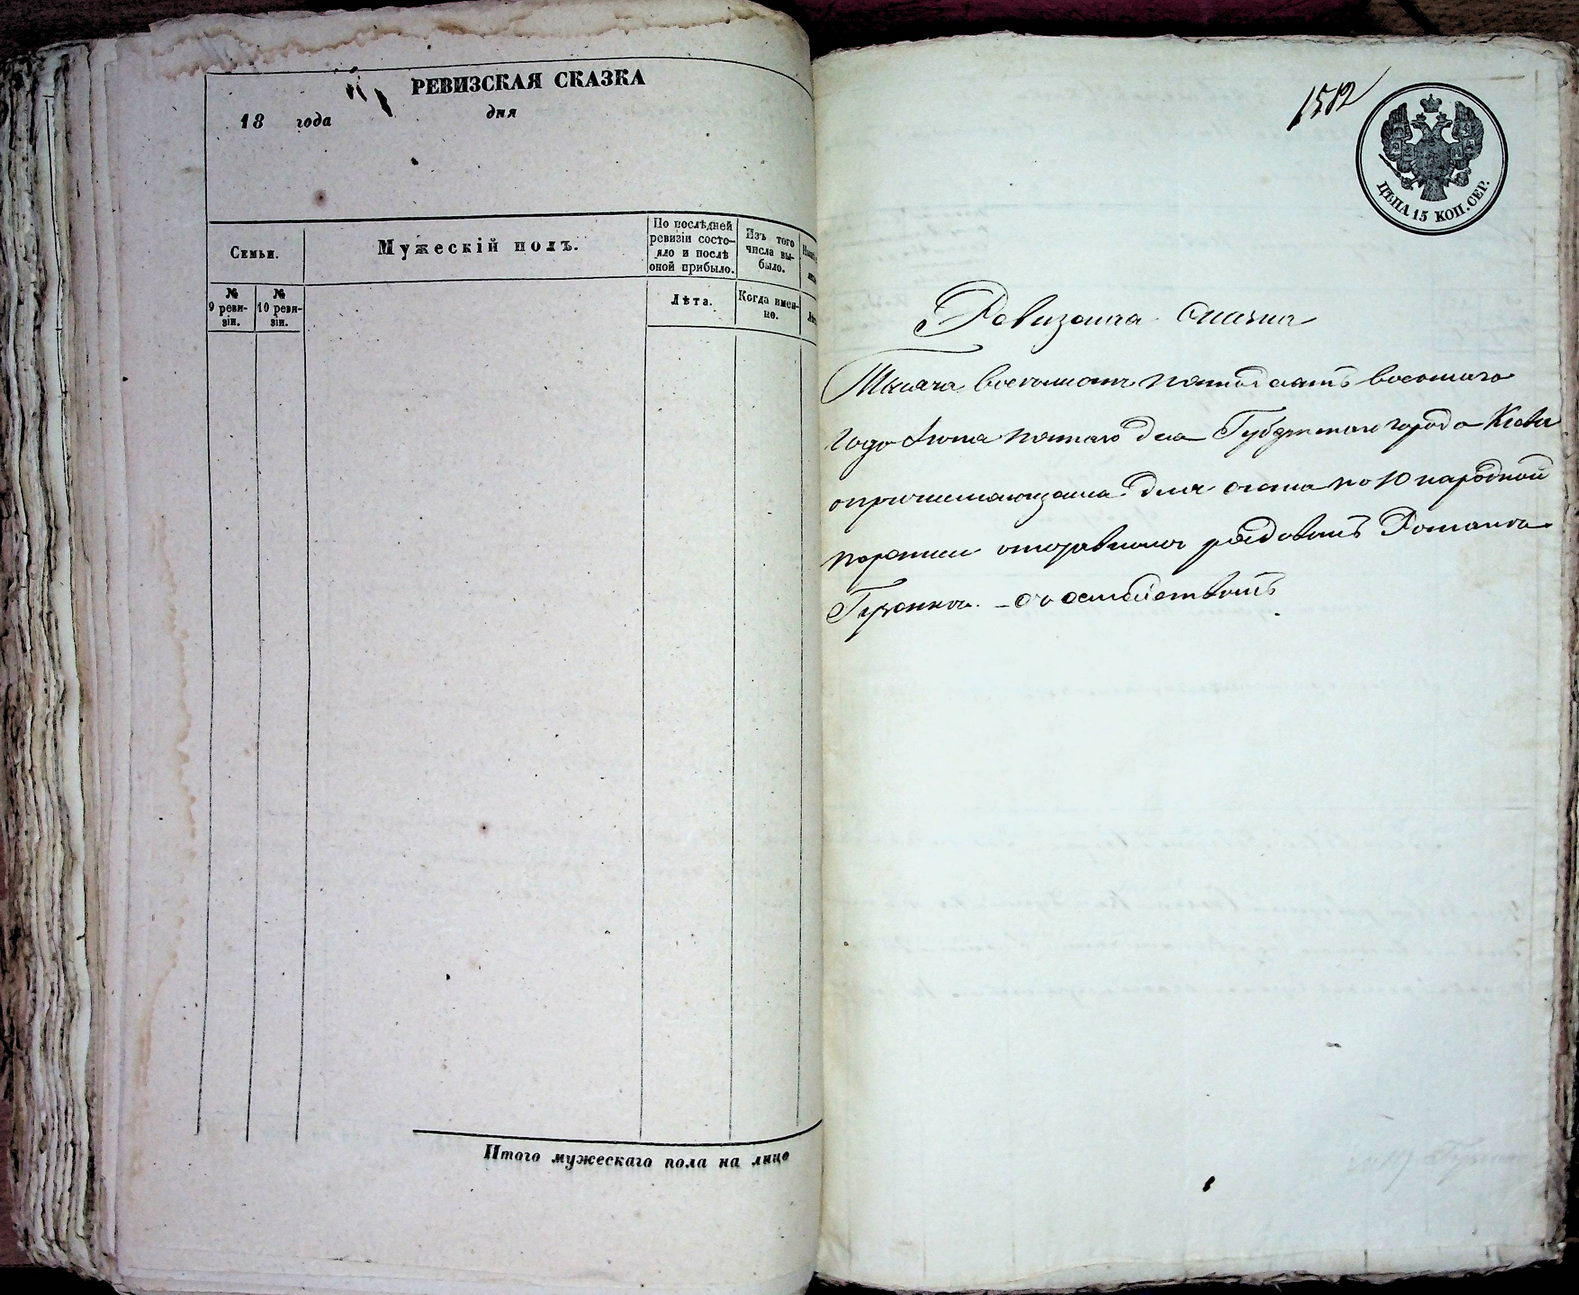 РЕВИЗСКАЯ СКАЗКА
18 года дня
Семьи.
Мужескій полъ.
По послѣдней
ревизіи состо-
яло и послѣ
оной прибыло.
Изъ того
числа вы-
было.
№
9 реви-
зіи.
№
10 реви-
зіи.
Лѣта.
Когда имен-
но.
Итого мужескаго пола на лицо
1512
ЦѢНА 15 КОП. СЕР.
Ревизская сказка
Тысяча восемьсотъ пятьдесятъ восьмаго
года Іюня пятаго дня Губернскаго города Кіева
о причисляющемся для счета по 10 народной
переписи отставномъ рядовомъ Романѣ
съ семействомъ